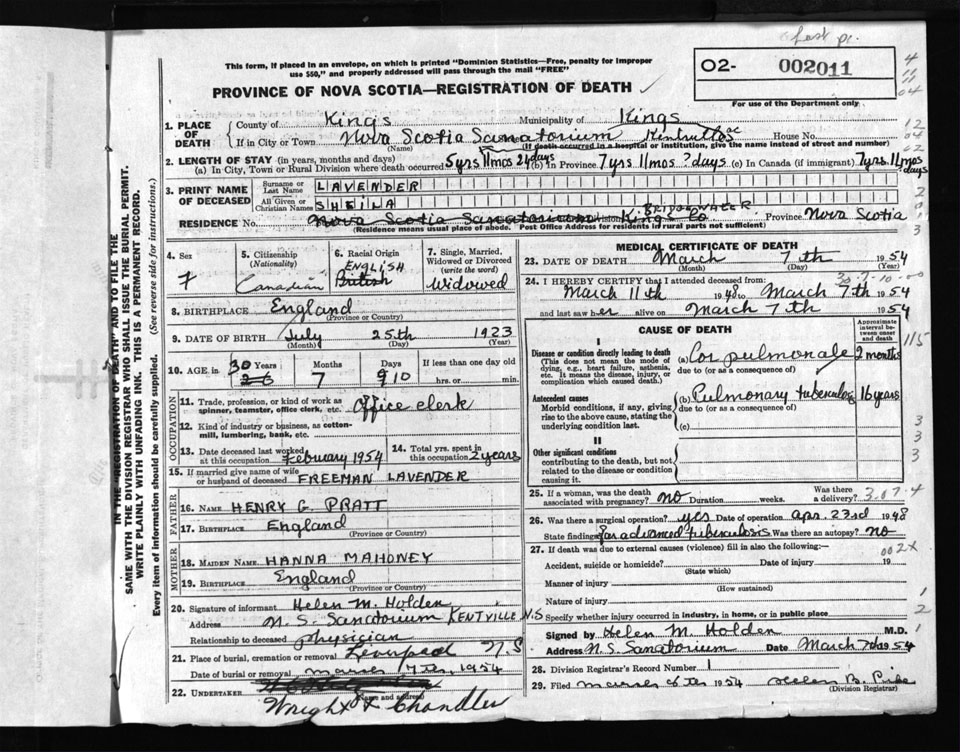 Last pc.
This form, if placed in an envelope, on which is printed "Dominion Statistics—Free, penalty for improper
use $50," and properly addressed will pass through the mail "FREE"
O2- 002011
For use of the Department only
PROVINCE OF NOVA SCOTIA—REGISTRATION OF DEATH
1. PLACE OF DEATH
County of Kings Municipality of Kings
If in City or Town Nova Scotia Sanatorium Kentville House No.
(Name) (If death occurred in a hospital or institution, give the name instead of street and number)
2. LENGTH OF STAY (in years, months and days)
(a) In City, Town or Rural Division where death occurred 5 yrs 11 mos 24 days (b) In Province 7 yrs 11 mos ? days (c) In Canada (if immigrant) 7 yrs 11 mos ? days
3. PRINT NAME OF DECEASED
Surname or Last Name LAVENDER
All Given or Christian Names SHEILA
BRIDGEWATER
RESIDENCE No. Nova Scotia Sanatorium Division Kings Co Province Nova Scotia
(Residence means usual place of abode. Post Office Address for residents in rural parts not sufficient)
4. Sex
F
5. Citizenship
(Nationality)
Canadian
6. Racial Origin
ENGLISH
British
7. Single, Married,
Widowed or Divorced
(write the word)
Widowed
8. BIRTHPLACE England
(Province or Country)
9. DATE OF BIRTH July 25th 1923
(Month) (Day) (Year)
10. AGE in 30 Years Months Days If less than one day old
26 7 9 10 hrs. or min.
OCCUPATION
11. Trade, profession, or kind of work as
spinner, teamster, office clerk, etc. Office clerk
12. Kind of industry or business, as cotton-
mill, lumbering, bank, etc.
13. Date deceased last worked
at this occupation February 1954
14. Total yrs. spent in
this occupation 2 years
15. If married give name of wife
or husband of deceased FREEMAN LAVENDER
FATHER
16. NAME HENRY G. PRATT
17. BIRTHPLACE England
(Province or Country)
MOTHER
18. MAIDEN NAME HANNA MAHONEY
19. BIRTHPLACE England
(Province or Country)
20. Signature of informant Helen M. Holden
Address N. S. Sanatorium KENTVILLE N.S
Relationship to deceased physician
21. Place of burial, cremation or removal Liverpool N.S
Date of burial or removal 1954
22. UNDERTAKER
(Name and address)
Wright & Chandler
MEDICAL CERTIFICATE OF DEATH
23. DATE OF DEATH March 7th 1954
(Month) (Day) (Year)
24. I HEREBY CERTIFY that I attended deceased from:
March 11th 1948 to March 7th 1954
and last saw her alive on March 7th 1954
CAUSE OF DEATH
Approximate interval between onset and death
I
Disease or condition directly leading to death
(This does not mean the mode of dying, e.g., heart failure, asthenia, etc. It means the disease, injury, or complication which caused death.)
(a) Cor pulmonale 2 months
due to (or as a consequence of)
Antecedent causes
Morbid conditions, if any, giving rise to the above cause, stating the underlying condition last.
(b) Pulmonary tuberculosis 16 years
due to (or as a consequence of)
(c)
II
Other significant conditions
contributing to the death, but not related to the disease or condition causing it.
25. If a woman, was the death
associated with pregnancy? no Duration weeks. Was there a delivery?
26. Was there a surgical operation? yes Date of operation Apr. 23rd 1948
State findings far advanced tuberculosis Was there an autopsy? no
27. If death was due to external causes (violence) fill in also the following:—
Accident, suicide or homicide? Date of injury 19
(State which)
Manner of injury
(How sustained)
Nature of injury
Specify whether injury occurred in industry, in home, or in public place
Signed by Helen M. Holden M.D.
Address N. S. Sanatorium Date March 7th 1954
28. Division Registrar's Record Number 1
29. Filed 1954 Helen B.
(Division Registrar)
IN THE "REGISTRATION OF DEATH" AND TO FILE THE
SAME WITH THE DIVISION REGISTRAR WHO SHALL ISSUE THE BURIAL PERMIT.
WRITE PLAINLY WITH UNFADING INK. THIS IS A PERMANENT RECORD.
Every item of information should be carefully supplied. (See reverse side for instructions.)